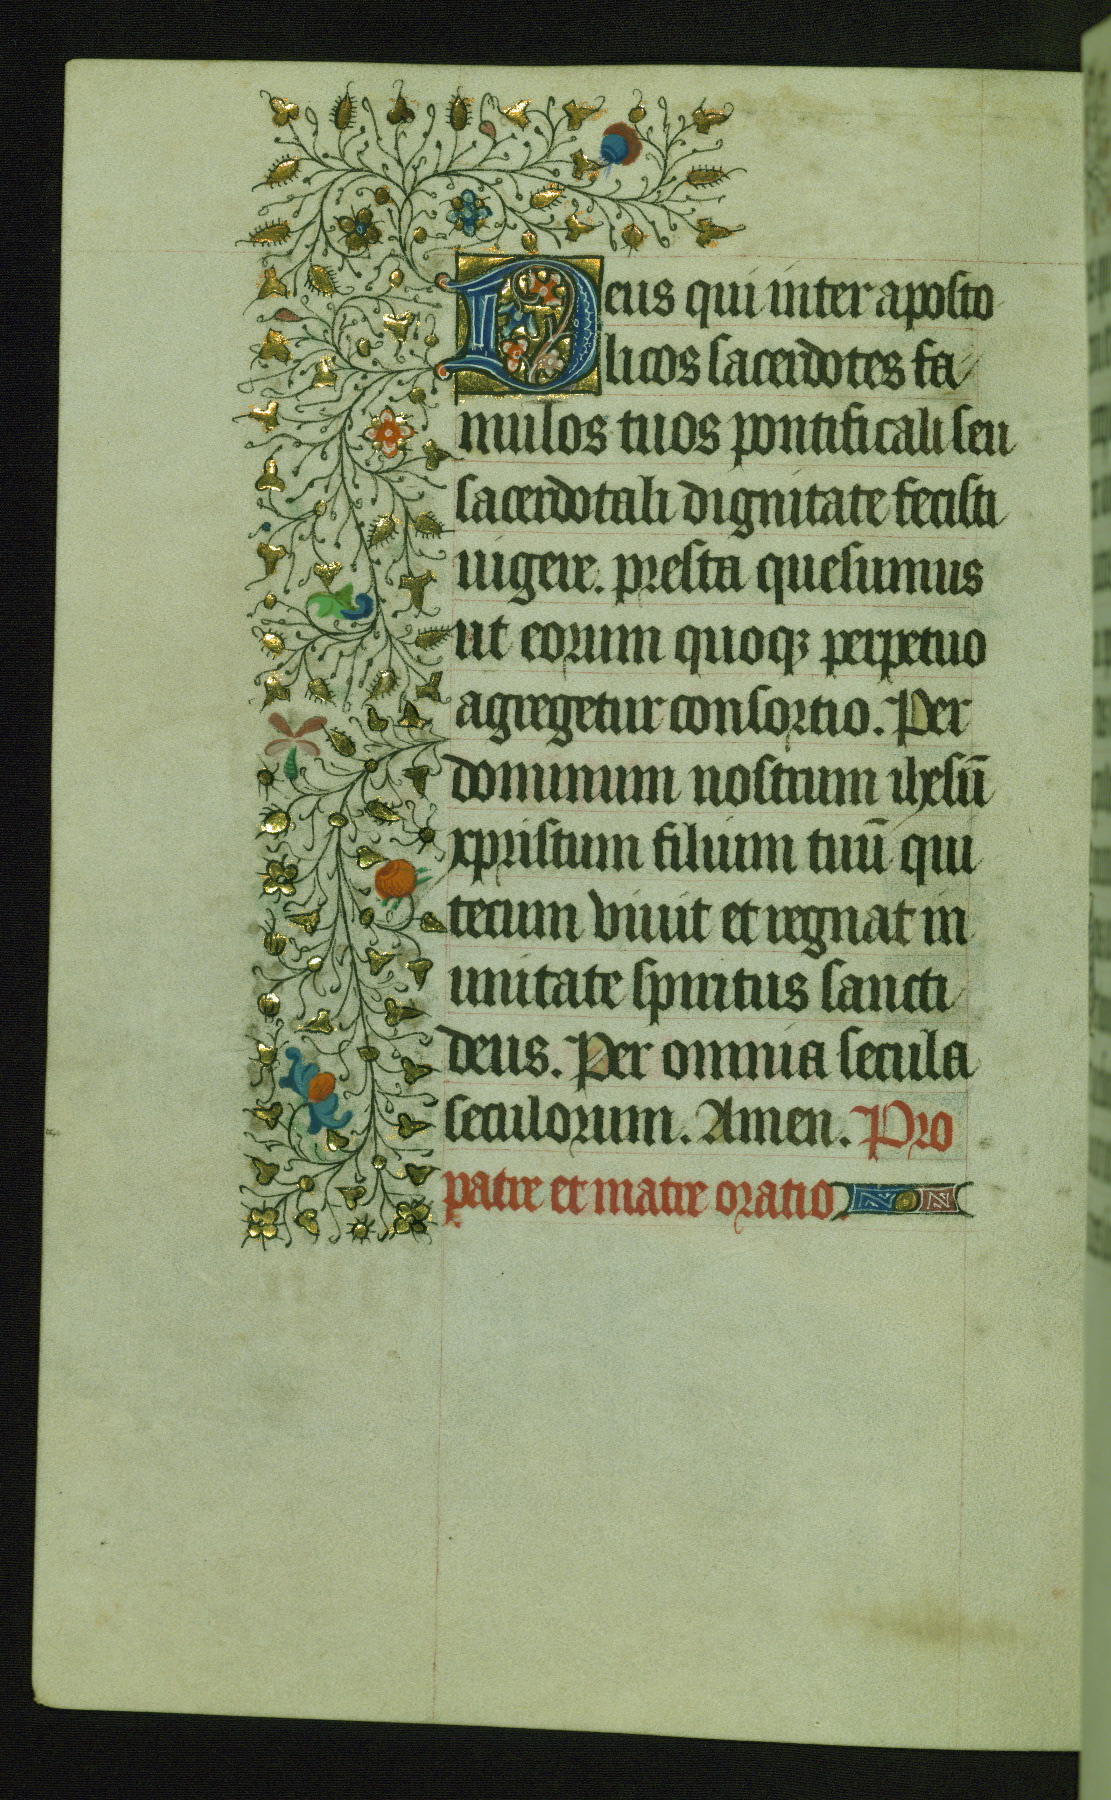 Deus qui inter aposto
licos sacerdotes fa
mulos tuos pontificali seu
sacerdotali dignitate fecisti
uigere. presta quesumus
ut eorum quoqꝫ perpetuo
agregetur consortio. Per
dominum nostrum ihesū
xpristum filium tuū qui
tecum viuit et regnat in
unitate spiritus sancti
deus. Per omnia secula
seculorum. Amen. Pro
patre et matre oratio.